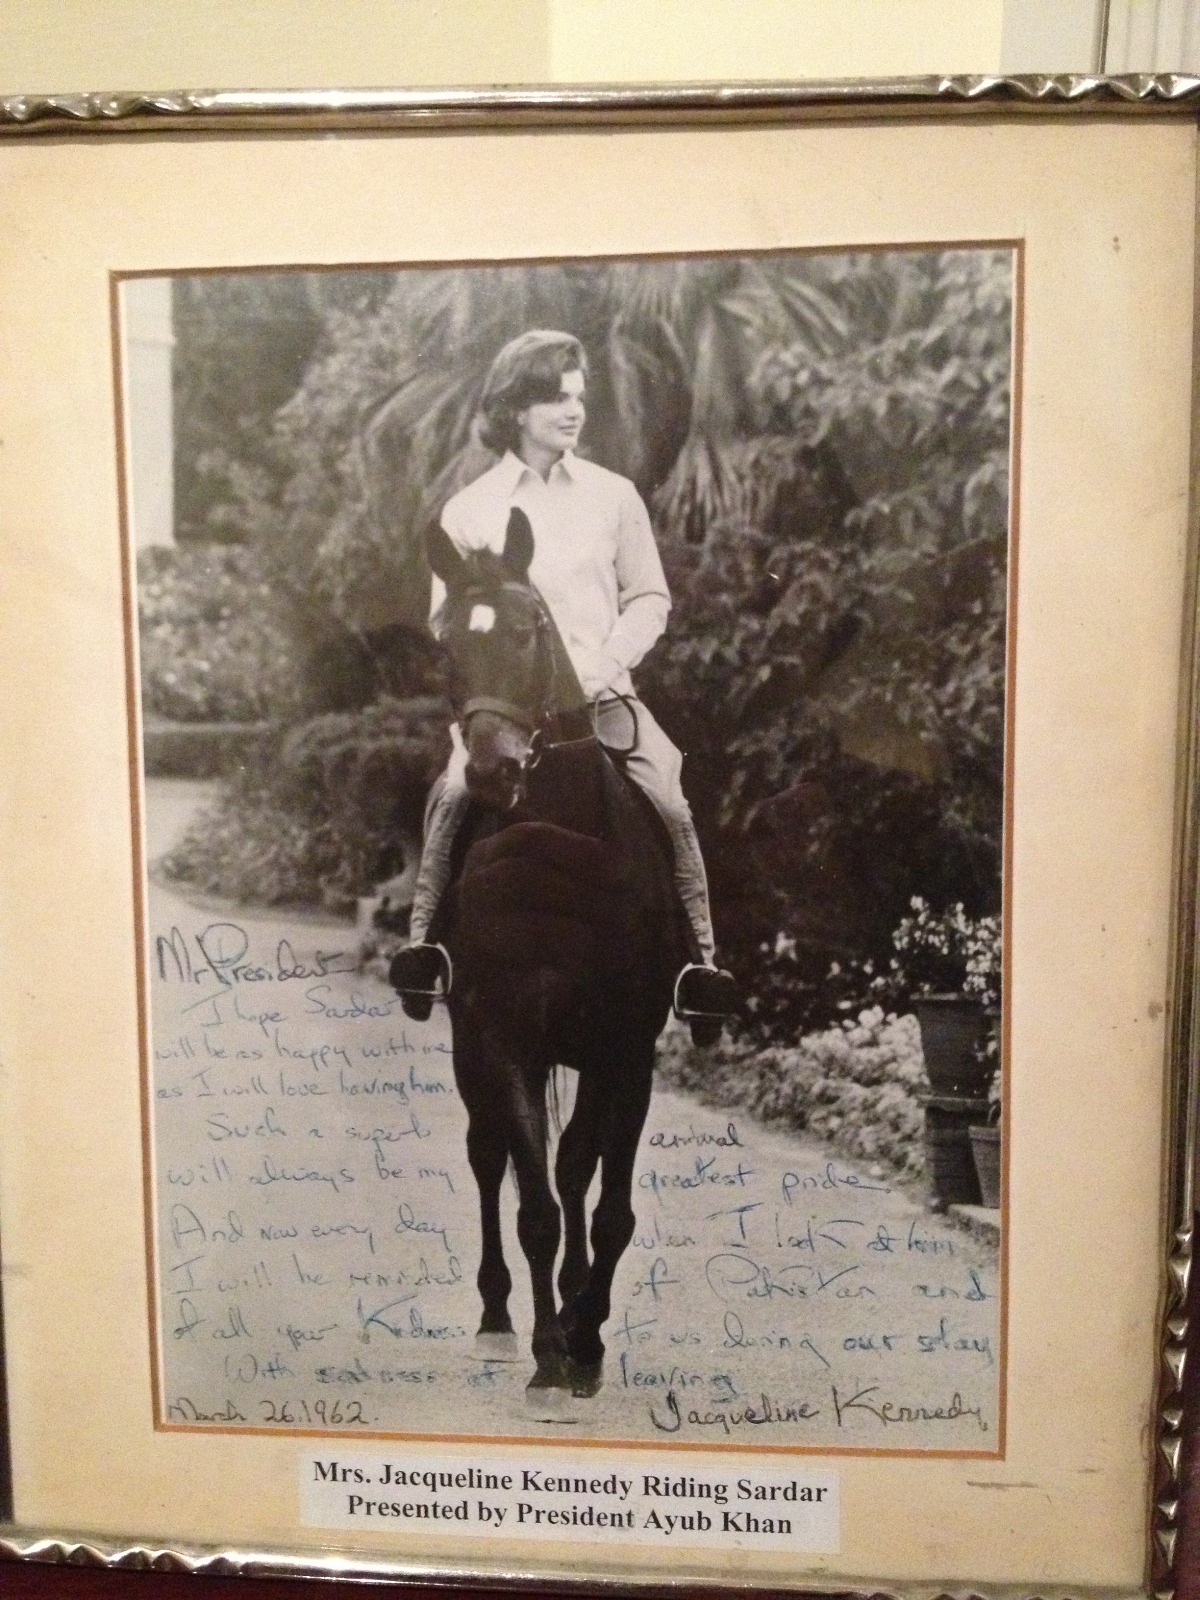 Mr President
I hope Sardar
will be as happy with me
as I will love having him.
Such a superb animal
will always be my greatest pride.
And now every day when I look at him
I will be reminded of Pakistan and
of all your Kindness to us during our stay
With sadness at leaving
March 26.1962. Jacqueline Kennedy
Mrs. Jacqueline Kennedy Riding Sardar
Presented by President Ayub Khan